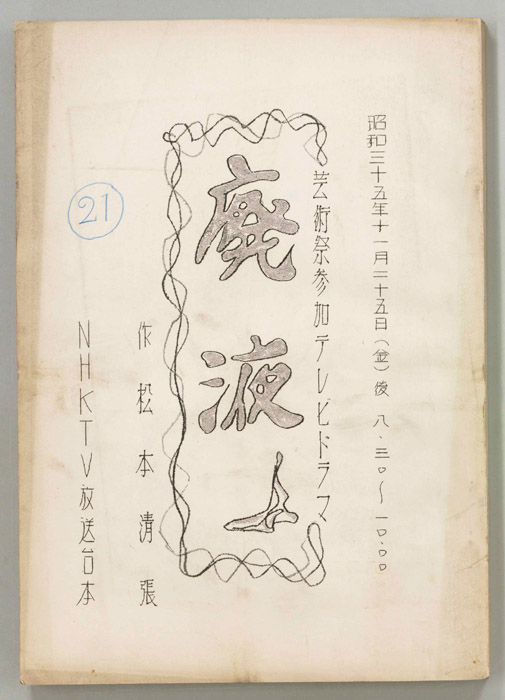 昭和三十五年十一月二十五日(金)後 八.三〇〜一〇.〇〇
芸術祭参加テレビドラマ
廃液
作 松本清張
NHKTV放送台本
21